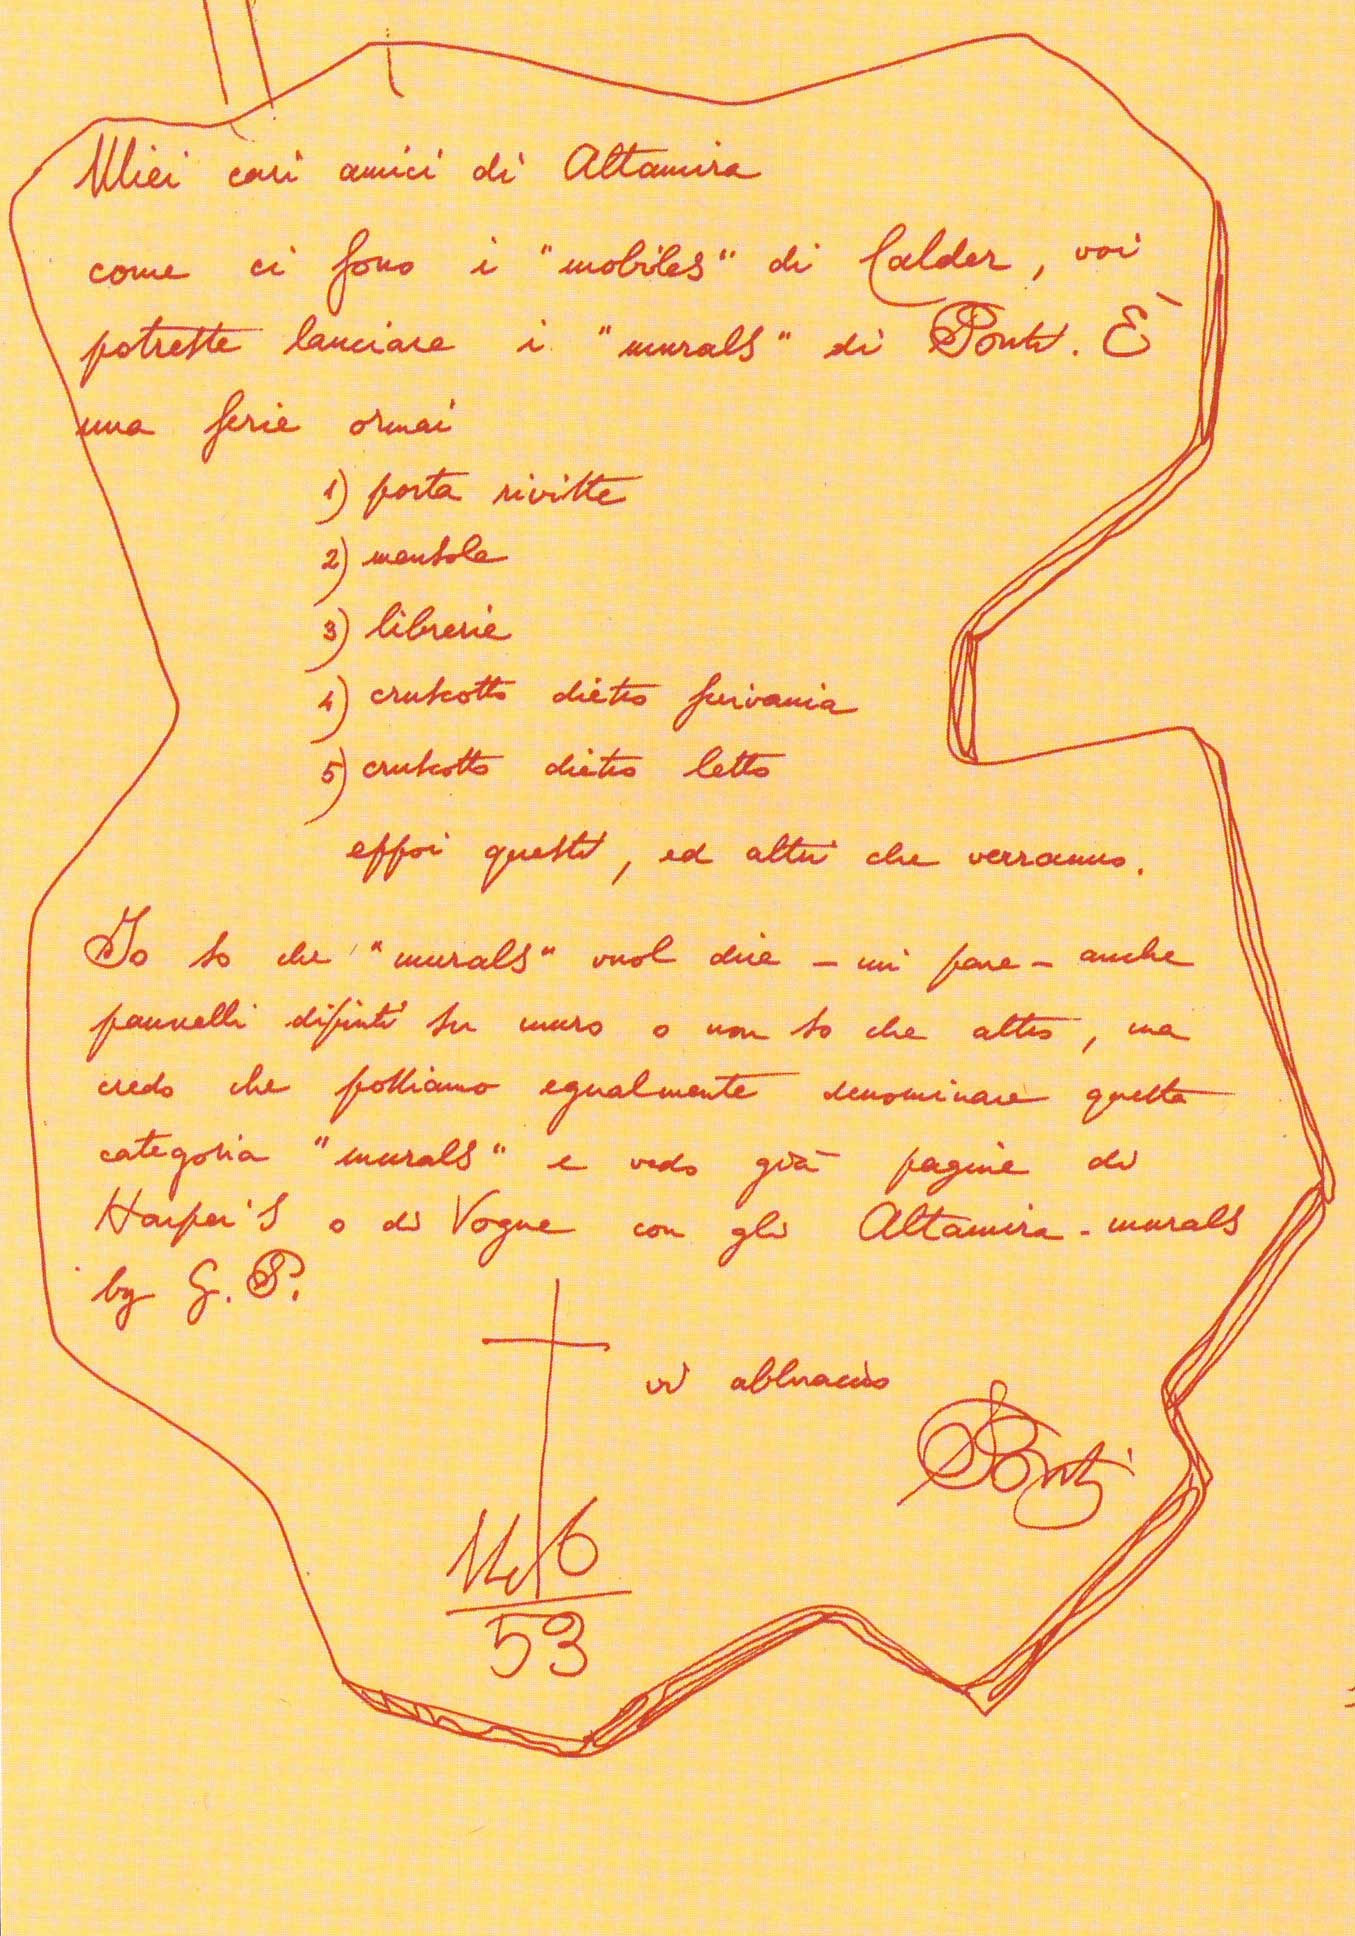 Miei cari amici di Altamira
come ci sono i "mobiles" di Calder, voi
potreste lanciare i "murals" di Ponti. È
una serie ormai
1) porta riviste
2) mensole
3) librerie
4) cruscotto dietro scrivania
5) cruscotto dietro letto
eppoi questi, ed altri che verranno.
Io so che "murals" vuol dire – mi pare – anche
pannelli dipinti su muro o non so che altro, ma
credo che possiamo egualmente denominare questa
categoria "murals" e vedo già pagine di
Harper's o di Vogue con gli Altamira-murals
by G. P.
vi abbraccio
Ponti
6
53